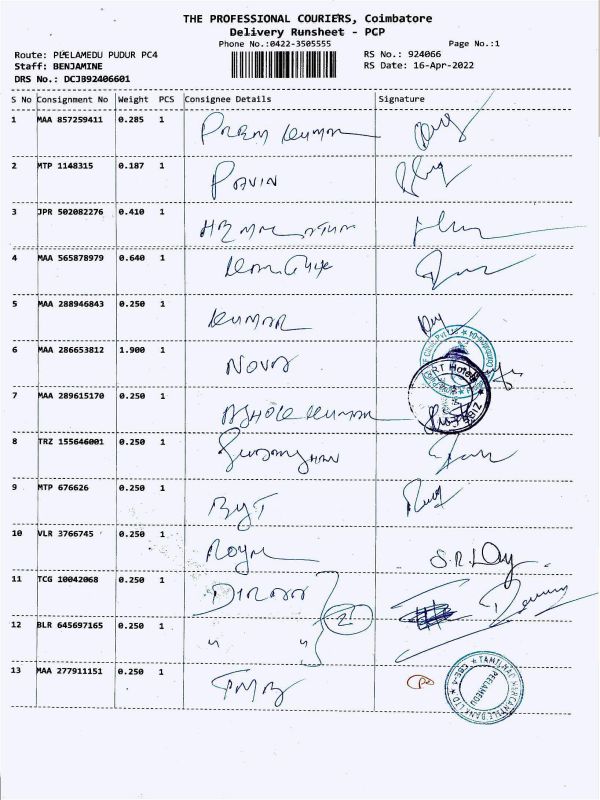 THE PROFESSIONAL COURIERS, Coimbatore
Delivery Runsheet - PCP
Phone No.:0422-3505555 Page No.:1
Route: PEELAMEDU PUDUR PC4 RS No.: 924066
Staff: BENJAMINE RS Date: 16-Apr-2022
DRS No.: DCJB92406601
S No Consignment No Weight PCS Consignee Details Signature
1 MAA 857259411 0.285 1 PREM KUMAR
2 MTP 1148315 0.187 1 PAVIN
3 JPR 502082276 0.410 1
4 MAA 565878979 0.640 1
5 MAA 288946843 0.250 1 KUMAR
6 MAA 286653812 1.900 1 NOVA
7 MAA 289615170 0.250 1 ASHOK KUMAR
8 TRZ 155646001 0.250 1
9 MTP 676626 0.250 1
10 VLR 3766745 0.250 1
11 TCG 10042068 0.250 1
12 BLR 645697165 0.250 1 " " 2
13 MAA 277911151 0.250 1 TMB
TAMILNAD MERCANTILE BANK LTD
PEELAMEDU
CBE-4